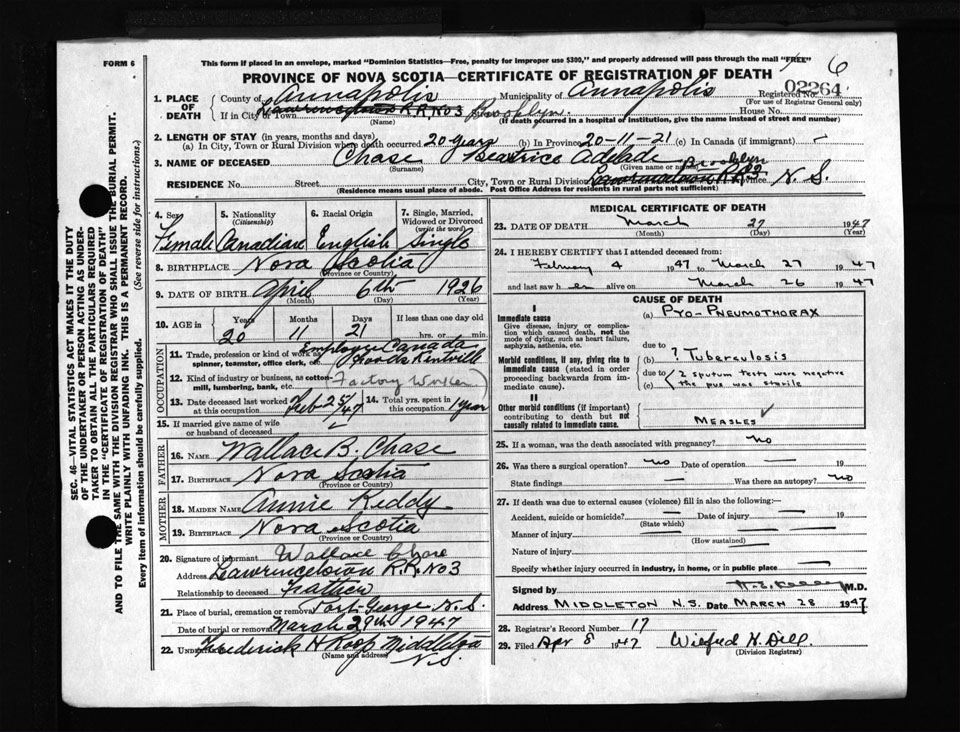 FORM 6
This form if placed in an envelope, marked "Dominion Statistics—Free, penalty for improper use $300," and properly addressed will pass through the mail "FREE"
6
PROVINCE OF NOVA SCOTIA—CERTIFICATE OF REGISTRATION OF DEATH
02264
Registered No.
(For use of Registrar General only)
1. PLACE OF DEATH
County of Annapolis Municipality of Annapolis
If in City or Town Lawrencetown R.R. No 3 Brooklyn. House No.
(Name) (If death occurred in a hospital of institution, give the name instead of street and number)
2. LENGTH OF STAY (in years, months and days)
(a) In City, Town or Rural Division where death occurred 20 years (b) In Province 20-11-21 (c) In Canada (if immigrant)
3. NAME OF DECEASED Chase Beatrice Adelade
(Surname) (Given name or names)
Brooklyn
RESIDENCE No. Street City, Town or Rural Division Lawrencetown R.R. Province N. S.
(Residence means usual place of abode. Post Office Address for residents in rural parts not sufficient)
4. Sex
Female
5. Nationality
(Citizenship)
Canadian
6. Racial Origin
English
7. Single, Married, Widowed or Divorced
(write the word)
Single
8. BIRTHPLACE Nova Scotia
(Province or Country)
9. DATE OF BIRTH April 6th 1926
(Month) (Day) (Year)
10. AGE in
Years Months Days If less than one day old
20 11 21 hrs. or min.
OCCUPATION
11. Trade, profession or kind of work as spinner, teamster, office clerk, etc. Employee Canada Foods Kentville
12. Kind of industry or business, as cotton-mill, lumbering, bank, etc. Factory Worker
13. Date deceased last worked at this occupation Feb 25/47
14. Total yrs. spent in this occupation 1 year
15. If married give name of wife or husband of deceased
FATHER
16. NAME Wallace B. Chase
17. BIRTHPLACE Nova Scotia
(Province or Country)
MOTHER
18. MAIDEN NAME Annie Reddy
19. BIRTHPLACE Nova Scotia
(Province or Country)
20. Signature of informant Wallace Chase
Address Lawrencetown R.R. No 3
Relationship to deceased Father
21. Place of burial, cremation or removal Port George N.S.
Date of burial or removal March 29th 1947
22. UNDERTAKER Frederick H Roop Middleton N.S.
(Name and address)
MEDICAL CERTIFICATE OF DEATH
23. DATE OF DEATH March 27 1947
(Month) (Day) (Year)
24. I HEREBY CERTIFY that I attended deceased from:
February 4 1947 to March 27 1947
and last saw her alive on March 26 1947
CAUSE OF DEATH
I
Immediate cause
Give disease, injury or complication which caused death, not the mode of dying, such as heart failure, asphyxia, asthenia, etc.
(a) PYO-PNEUMOTHORAX
due to
Morbid conditions, if any, giving rise to immediate cause (stated in order proceeding backwards from immediate cause).
(b) ? Tuberculosis
due to
(c) (2 sputum tests were negative
the pus was sterile
II
Other morbid conditions (if important) contributing to death but not causally related to immediate cause.
MEASLES
25. If a woman, was the death associated with pregnancy? no
26. Was there a surgical operation? no Date of operation 19
State findings Was there an autopsy? no
27. If death was due to external causes (violence) fill in also the following:—
Accident, suicide or homicide? Date of injury 19
(State which)
Manner of injury
(How sustained)
Nature of injury
Specify whether injury occurred in industry, in home, or in public place
Signed by M.D.
Address MIDDLETON N.S. Date MARCH 28 1947
28. Registrar's Record Number 17
29. Filed Apr 8 1947 Wilfred H. Dill
(Division Registrar)
SEC. 46—VITAL STATISTICS ACT MAKES IT THE DUTY
OF THE UNDERTAKER OR PERSON ACTING AS UNDER-
TAKER TO OBTAIN ALL THE PARTICULARS REQUIRED
IN THE "CERTIFICATE OF REGISTRATION OF DEATH"
AND TO FILE THE SAME WITH THE DIVISION REGISTRAR WHO SHALL ISSUE THE BURIAL PERMIT.
WRITE PLAINLY WITH UNFADING INK. THIS IS A PERMANENT RECORD.
Every item of information should be carefully supplied. (See reverse side for instructions.)